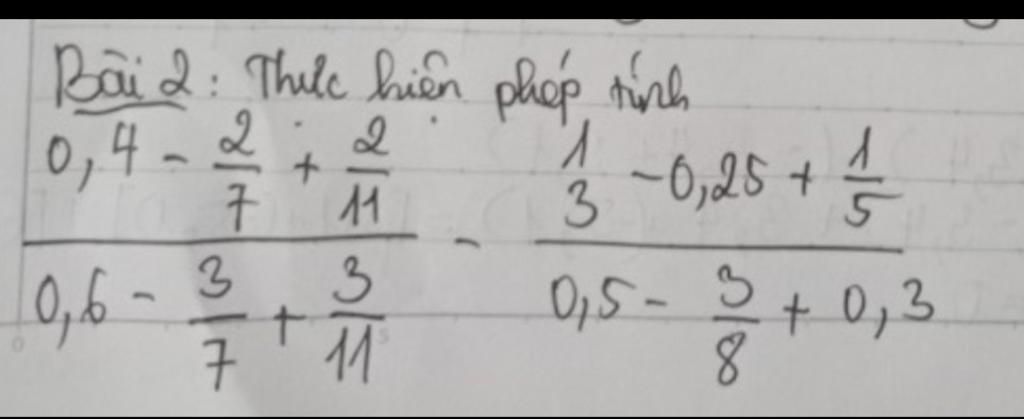 Bài 2: Thực hiện phép tính
\frac{0,4 - \frac{2}{7} + \frac{2}{11}}{0,6 - \frac{3}{7} + \frac{3}{11}} - \frac{\frac{1}{3} - 0,25 + \frac{1}{5}}{0,5 - \frac{3}{8} + 0,3}